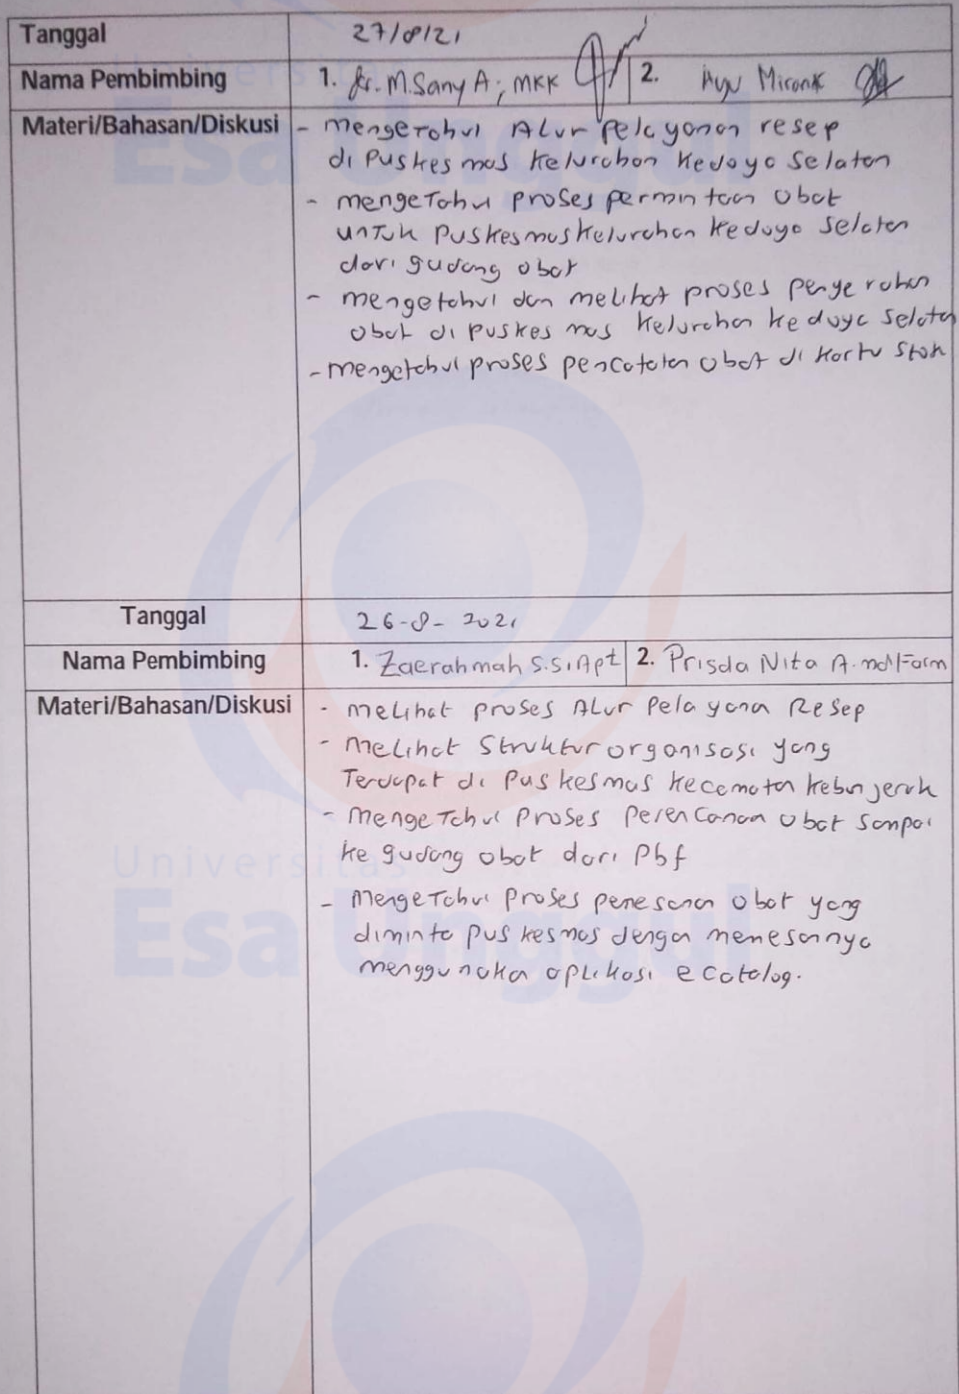 Tanggal 27/8/21
Nama Pembimbing 1. dr. M. Sany A, MKK 2. Ayu
Materi/Bahasan/Diskusi - mengetahui Alur pelayanan resep
di Puskesmas kelurahan kedoya selatan
- mengetahui proses permintaan obat
untuk Puskesmas kelurahan kedoya selatan
dari gudang obat
- mengetahui dan melihat proses penyerahan
obat di puskesmas kelurahan kedoya selatan
- mengetahui proses pencatatan obat di kartu stok
Tanggal 26-8-2021
Nama Pembimbing 1. Zaerahmah S.Si Apt 2. Prisda Nita A.md Farm
Materi/Bahasan/Diskusi - melihat proses Alur Pelayana Resep
- melihat Struktur organisasi yang
Terdapat di Puskesmas kecamatan kebun jeruk
- mengetahui proses perencanan obat sampai
ke gudang obat dari Pbf
- mengetahui proses pemesanan obat yang
diminta puskesmas dengan memesannya
menggunaka aplikasi ecatalog.
Universitas
Esa Unggul